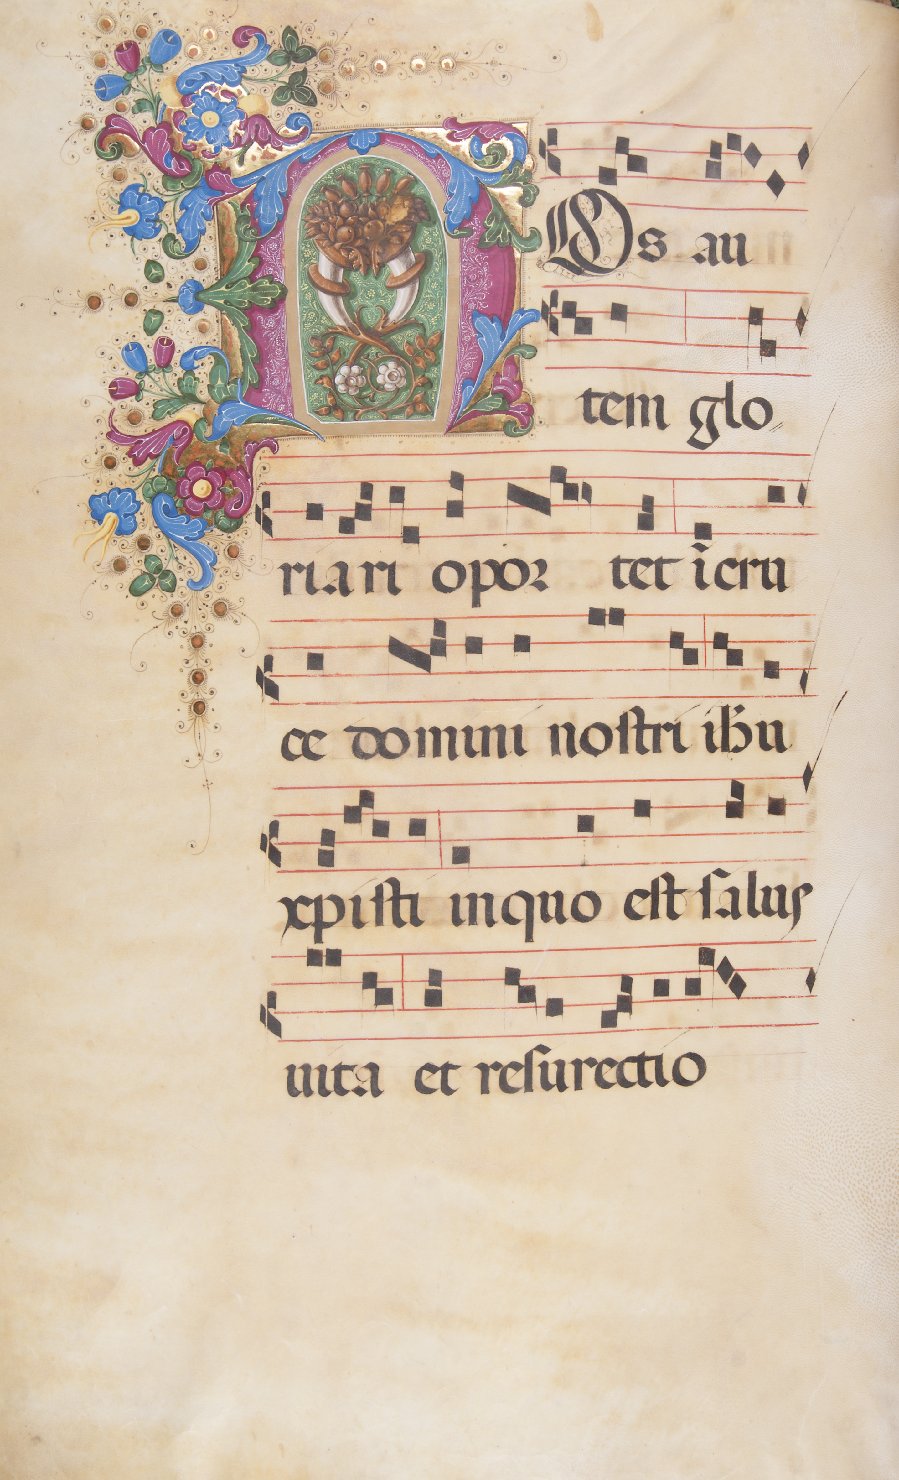 NOs au
tem glo
riari opor tet i̅ cru
ce domini nostri ihu̅
xpisti in quo est salus
uita et resurectio